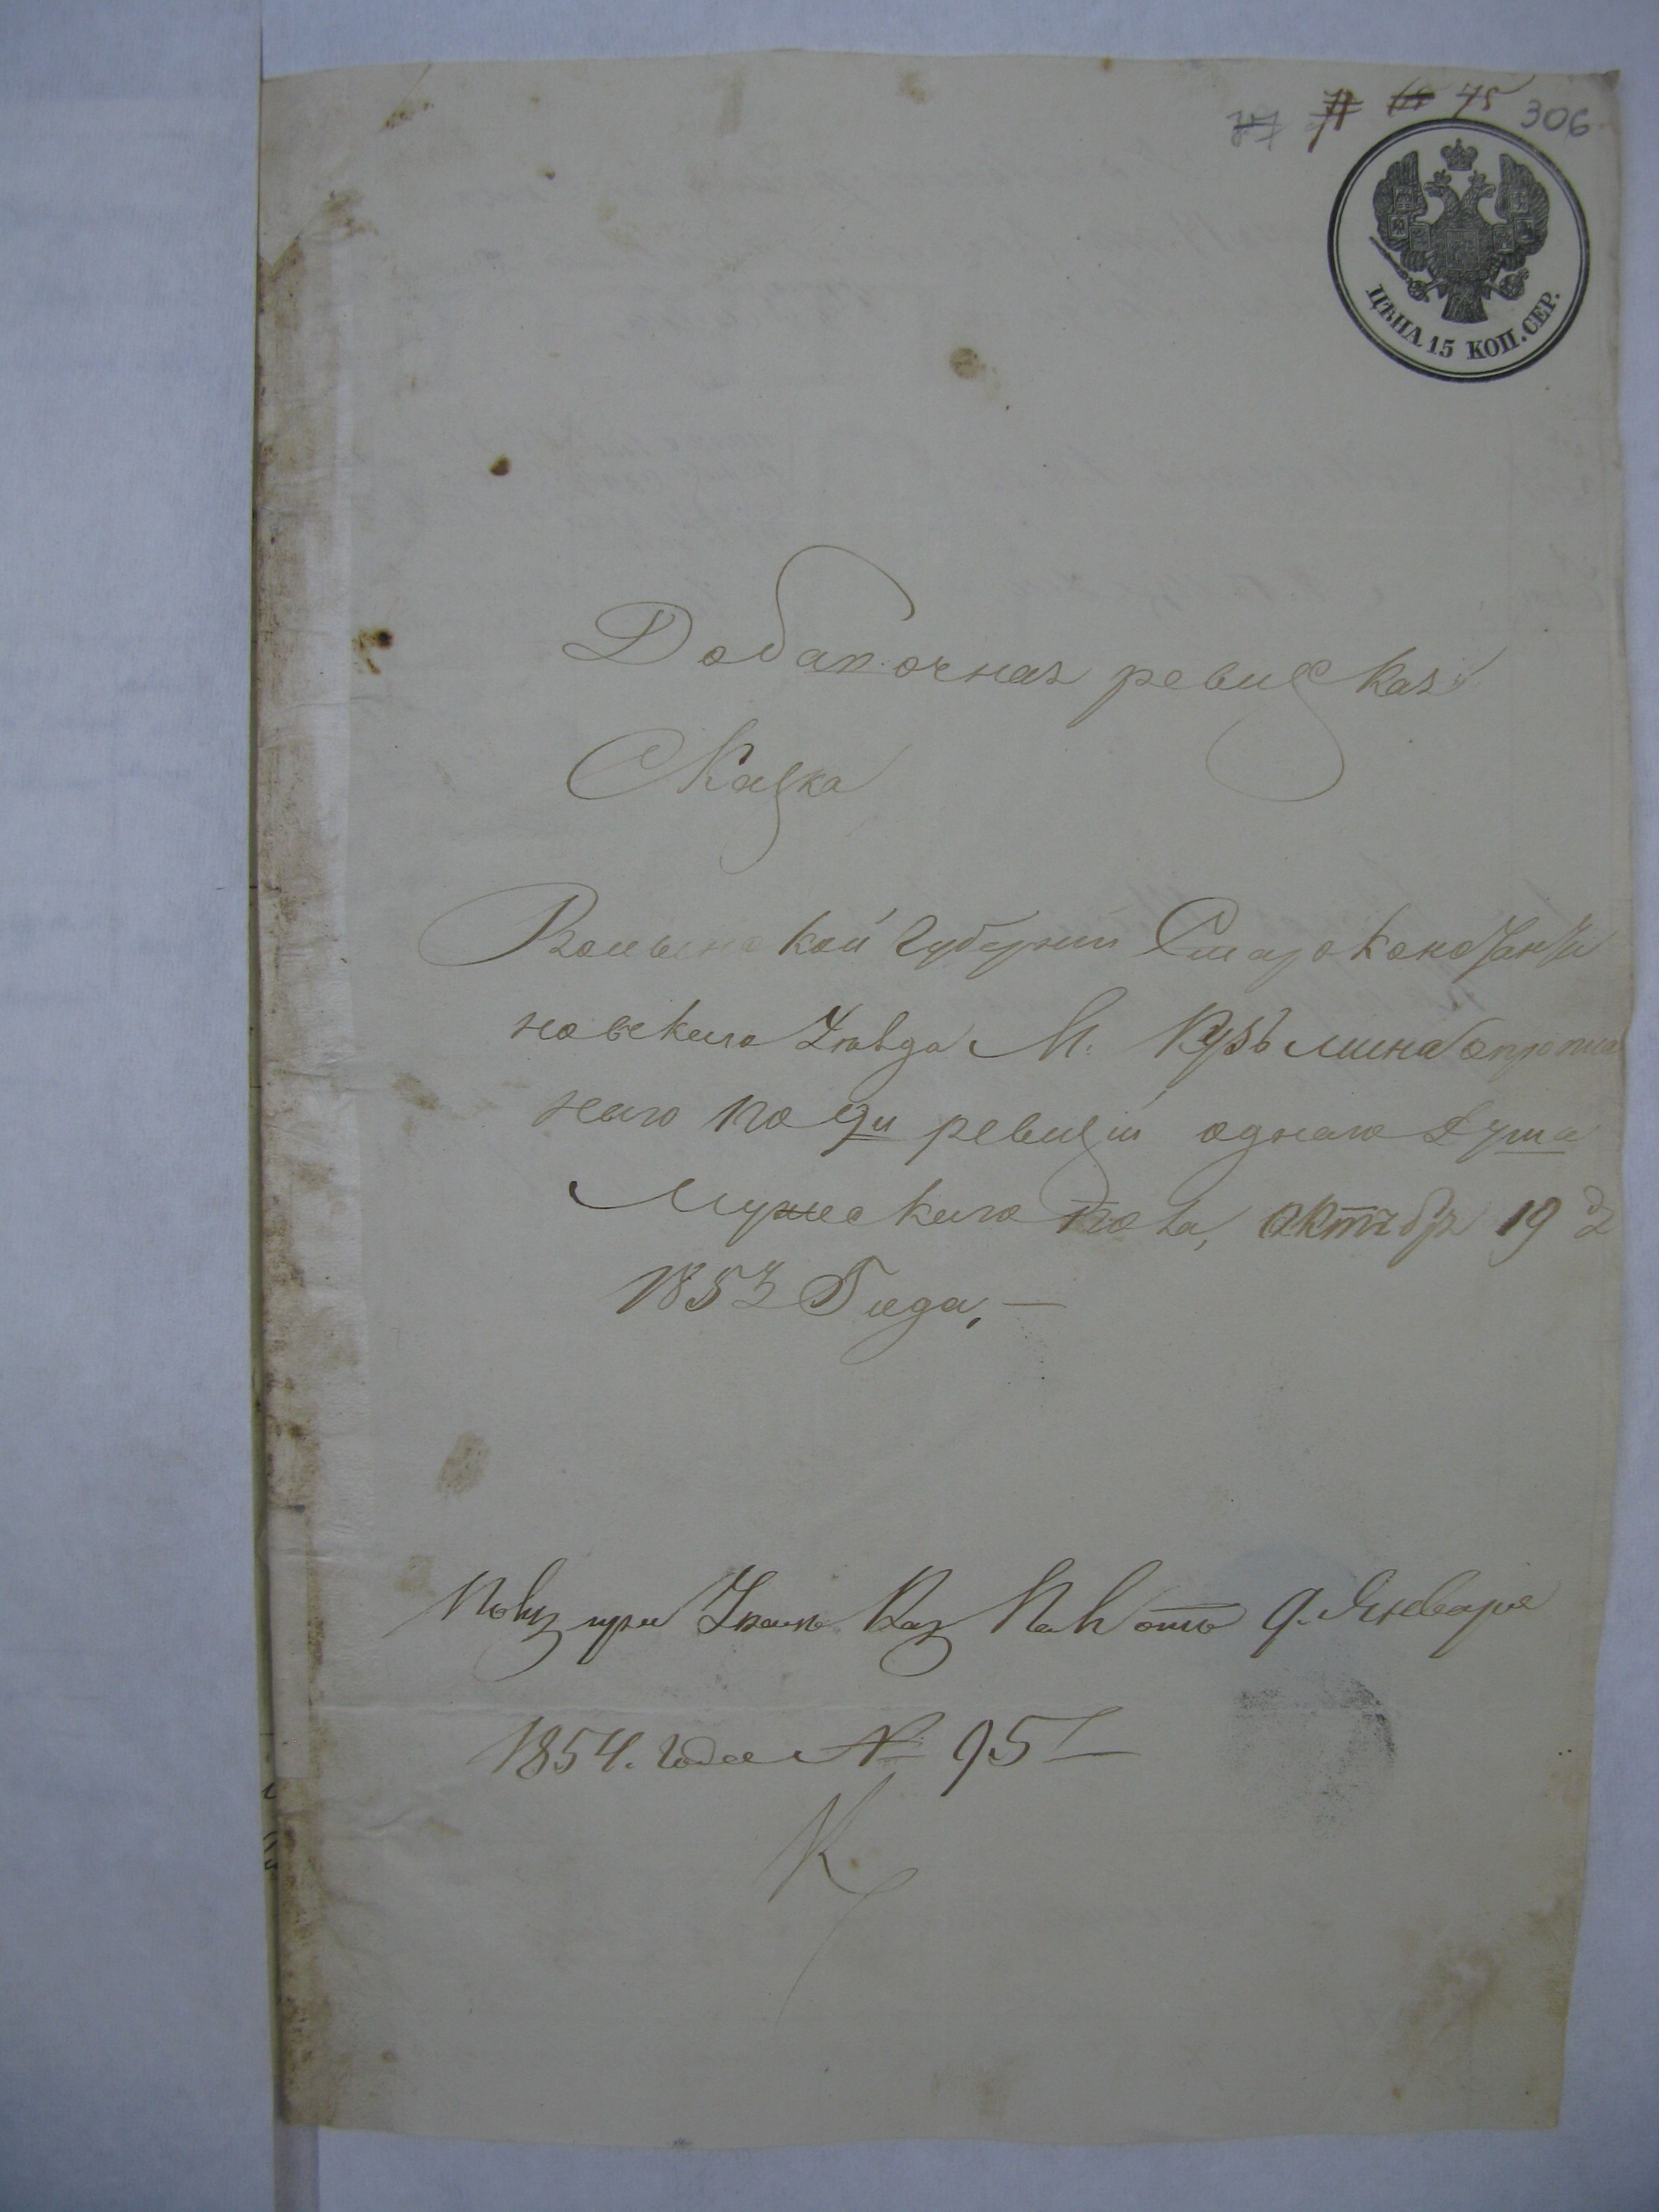 75 306
ЦѢНА 15 КОП. СЕР.
Добапочная ревизкая
Скаска
Волынской Губерніи Староконстанти
новскаго Уѣзда М. Кузьмина о прописа
наго по 9й ревизіи одного душа
Мужескаго пола, октябр 19 д
1853 Года, —
при Указѣ Каз Пал отъ 9. Января
1854. года № 951
К